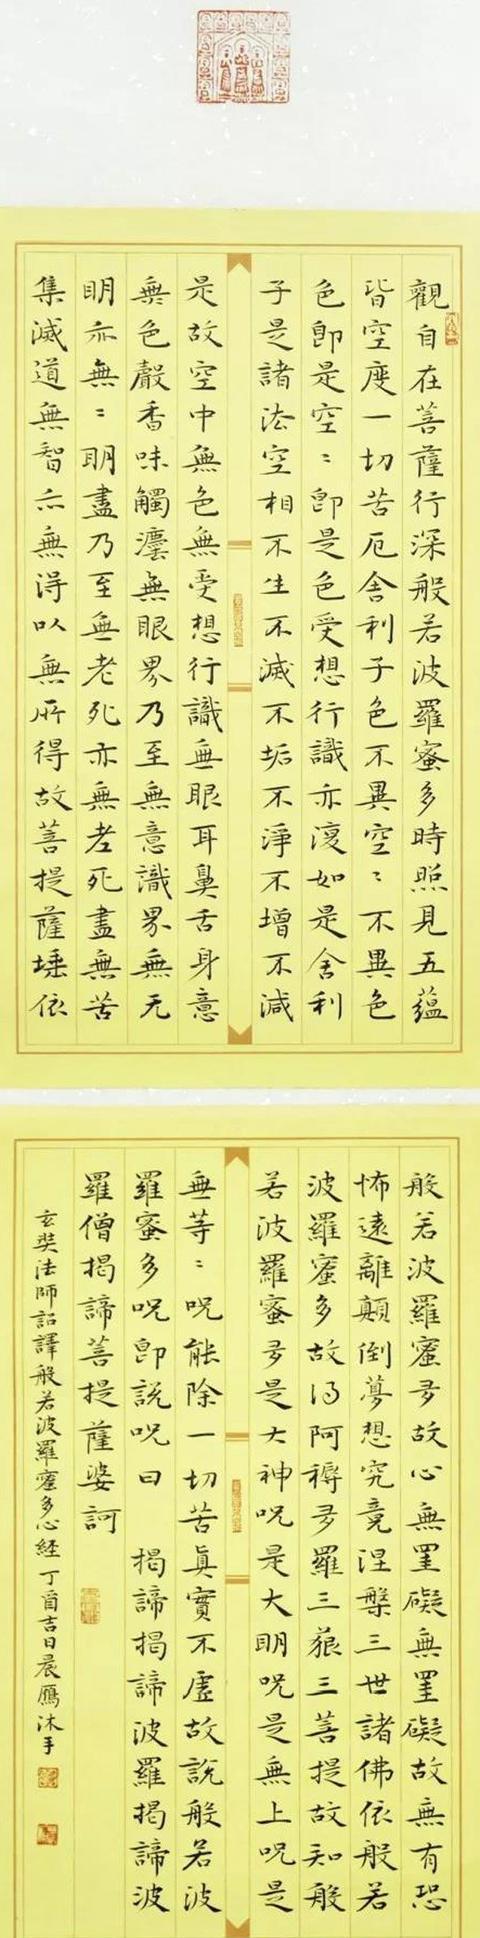 觀自在菩薩行深般若波羅蜜多時照見五蘊
皆空度一切苦厄舍利子色不異空〻不異色
色即是空〻即是色受想行識亦復如是舍利
子是諸法空相不生不滅不垢不淨不增不減
是故空中無色無受想行識無眼耳鼻舌身意
無色聲香味觸灋無眼界乃至無意識界無无
明亦無〻明盡乃至無老死亦無老死盡無苦
集滅道無智亦無得以無所得故菩提薩埵依
般若波羅蜜多故心無罣礙無罣礙故無有恐
怖遠離顛倒夢想究竟涅槃三世諸佛依般若
波羅蜜多故得阿耨多羅三藐三菩提故知般
若波羅蜜多是大神呪是大明呪是無上呪是
無等〻呪能除一切苦真實不虛故說般若波
羅蜜多呪即說呪曰 揭諦揭諦波羅揭諦波
羅僧揭諦菩提薩婆訶
玄奘法師詔譯般若波羅蜜多心經丁酉吉日晨鴈沐手